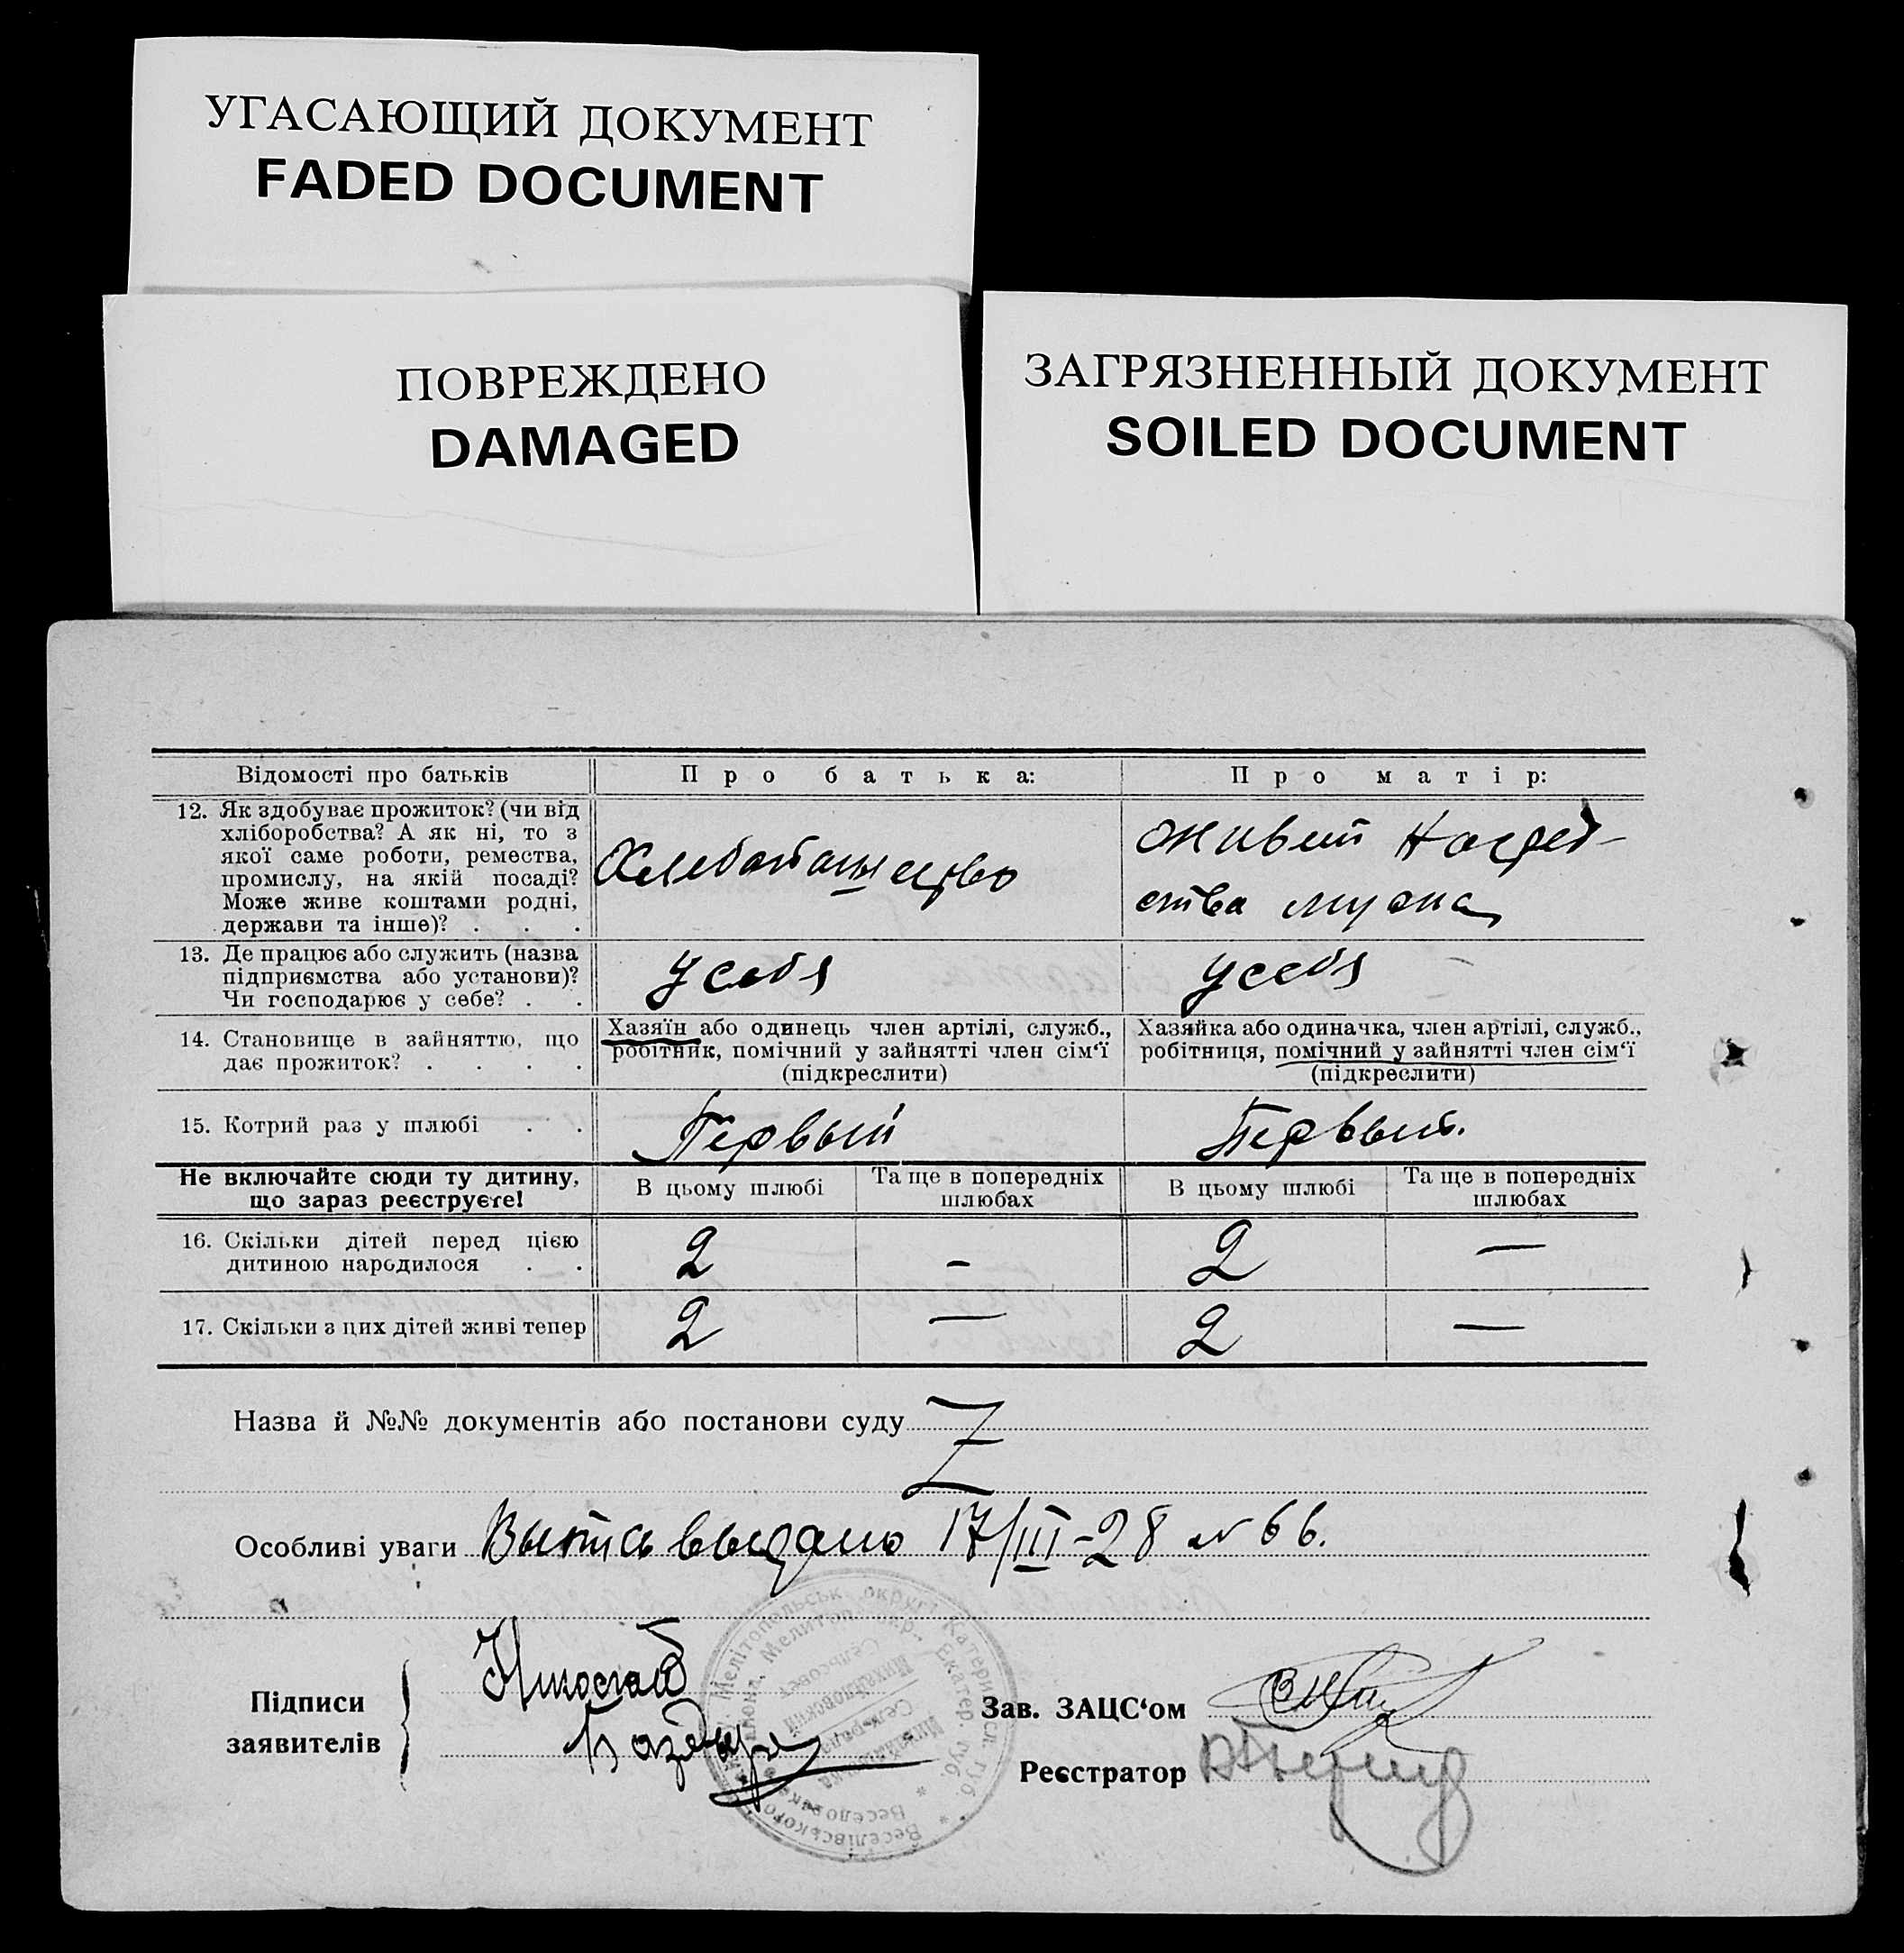 УГАСАЮЩИЙ ДОКУМЕНТ
FADED DOCUMENT
ПОВРЕЖДЕНО
DAMAGED
ЗАГРЯЗНЕННЫЙ ДОКУМЕНТ
SOILED DOCUMENT
Відомості про батьків
Про батька:
Про матір:
12. Як здобуває прожиток? (чи від
хліборобства? А як ні, то з
якої саме роботи, ремества,
промислу, на якій посаді?
Може живе коштами родні,
держави та інше)? . . .
живет
ства мужа
13. Де працює або служить (назва
підприємства або установи)?
Чи господарює у себе? . .
У себя
У себя
14. Становище в зайняттю, що
дає прожиток? . . . .
Хазяїн або одинець член артілі, служб.,
робітник, помічний у зайнятті член сім‘ї
(підкреслити)
Хазяйка або одиначка, член артілі, служб.,
робітниця, помічний у зайнятті член сім‘ї
(підкреслити)
15. Котрий раз у шлюбі . .
Первый
Первый.
Не включайте сюди ту дитину,
що зараз реєструєте!
В цьому шлюбі
Та ще в попередніх
шлюбах
В цьому шлюбі
Та ще в попередніх
шлюбах
16. Скільки дітей перед цією
дитиною народилося . .
2
–
2
—
17. Скільки з цих дітей живі тепер
2
—
2
—
Назва й №№ документів або постанови суду
Z
Особливі уваги Выпись выдано 17/III-28 № 66.
Підписи
заявителів
Николай
Зав. ЗАЦС‘ом
Реєстратор
Веселівського району, Мелітопольськ. округі Катериносл. губ.
Михайлівська
Сел-рада
Михайловский
Сельсовет